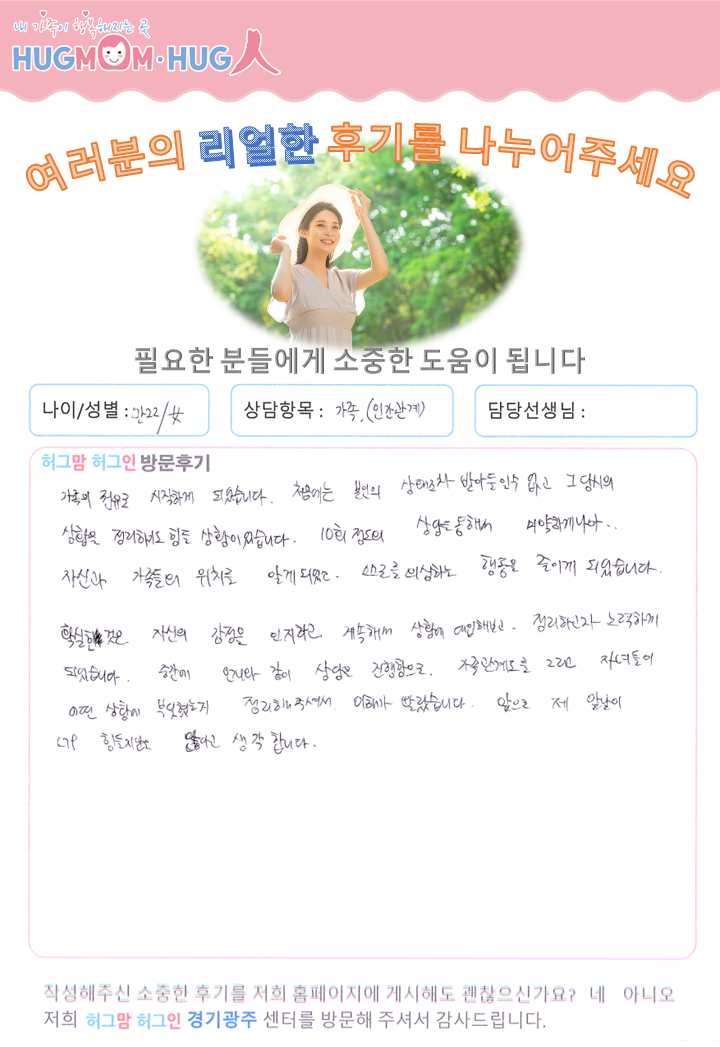 내 가족이 행복해지는 곳
HUGMOM·HUG人
여러분의 리얼한 후기를 나누어주세요
필요한 분들에게 소중한 도움이 됩니다
나이/성별 : 만22/女
상담항목 : 가족, (인간관계)
담당선생님 :
허그맘 허그인 방문후기
가족의 권유로 시작하게 되었습니다. 처음에는 본인의 상태조차 받아들일수 없고 그 당시의
상황은 정리하려도 힘들 상황이었습니다. 10회 정도의 상담을 통해서 미약하게나마..
자신과 가족들의 위치로 알게되었고. 스스로를 의심하는 행동을 줄이게 되었습니다.
확실한 것은 자신의 감정을 인지하고 계속해서 상황에 대입해보고. 정리하고자 노력하게
되었습니다. 중간에 언니와 같이 상담을 진행함으로. 가족관계도를 그리고 자녀들이
어떤 상황에 부딪혔는지 정리해주셔서 이해가 빨랐습니다. 앞으로 제 앞날이
힘들지만은 않다고 생각합니다.
작성해주신 소중한 후기를 저희 홈페이지에 게시해도 괜찮으신가요? 네 아니오
저희 허그맘 허그인 경기광주 센터를 방문해 주셔서 감사드립니다.